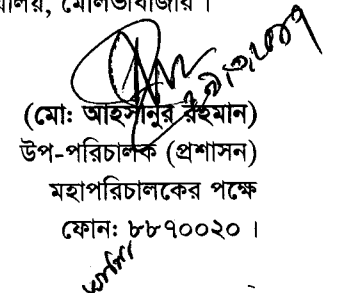 মৌলভীবাজার ।
(মো: আহসানুর রহমান)
উপ-পরিচালক (প্রশাসন)
মহাপরিচালকের পক্ষে
ফোন: ৮৮৭০০২০ ।